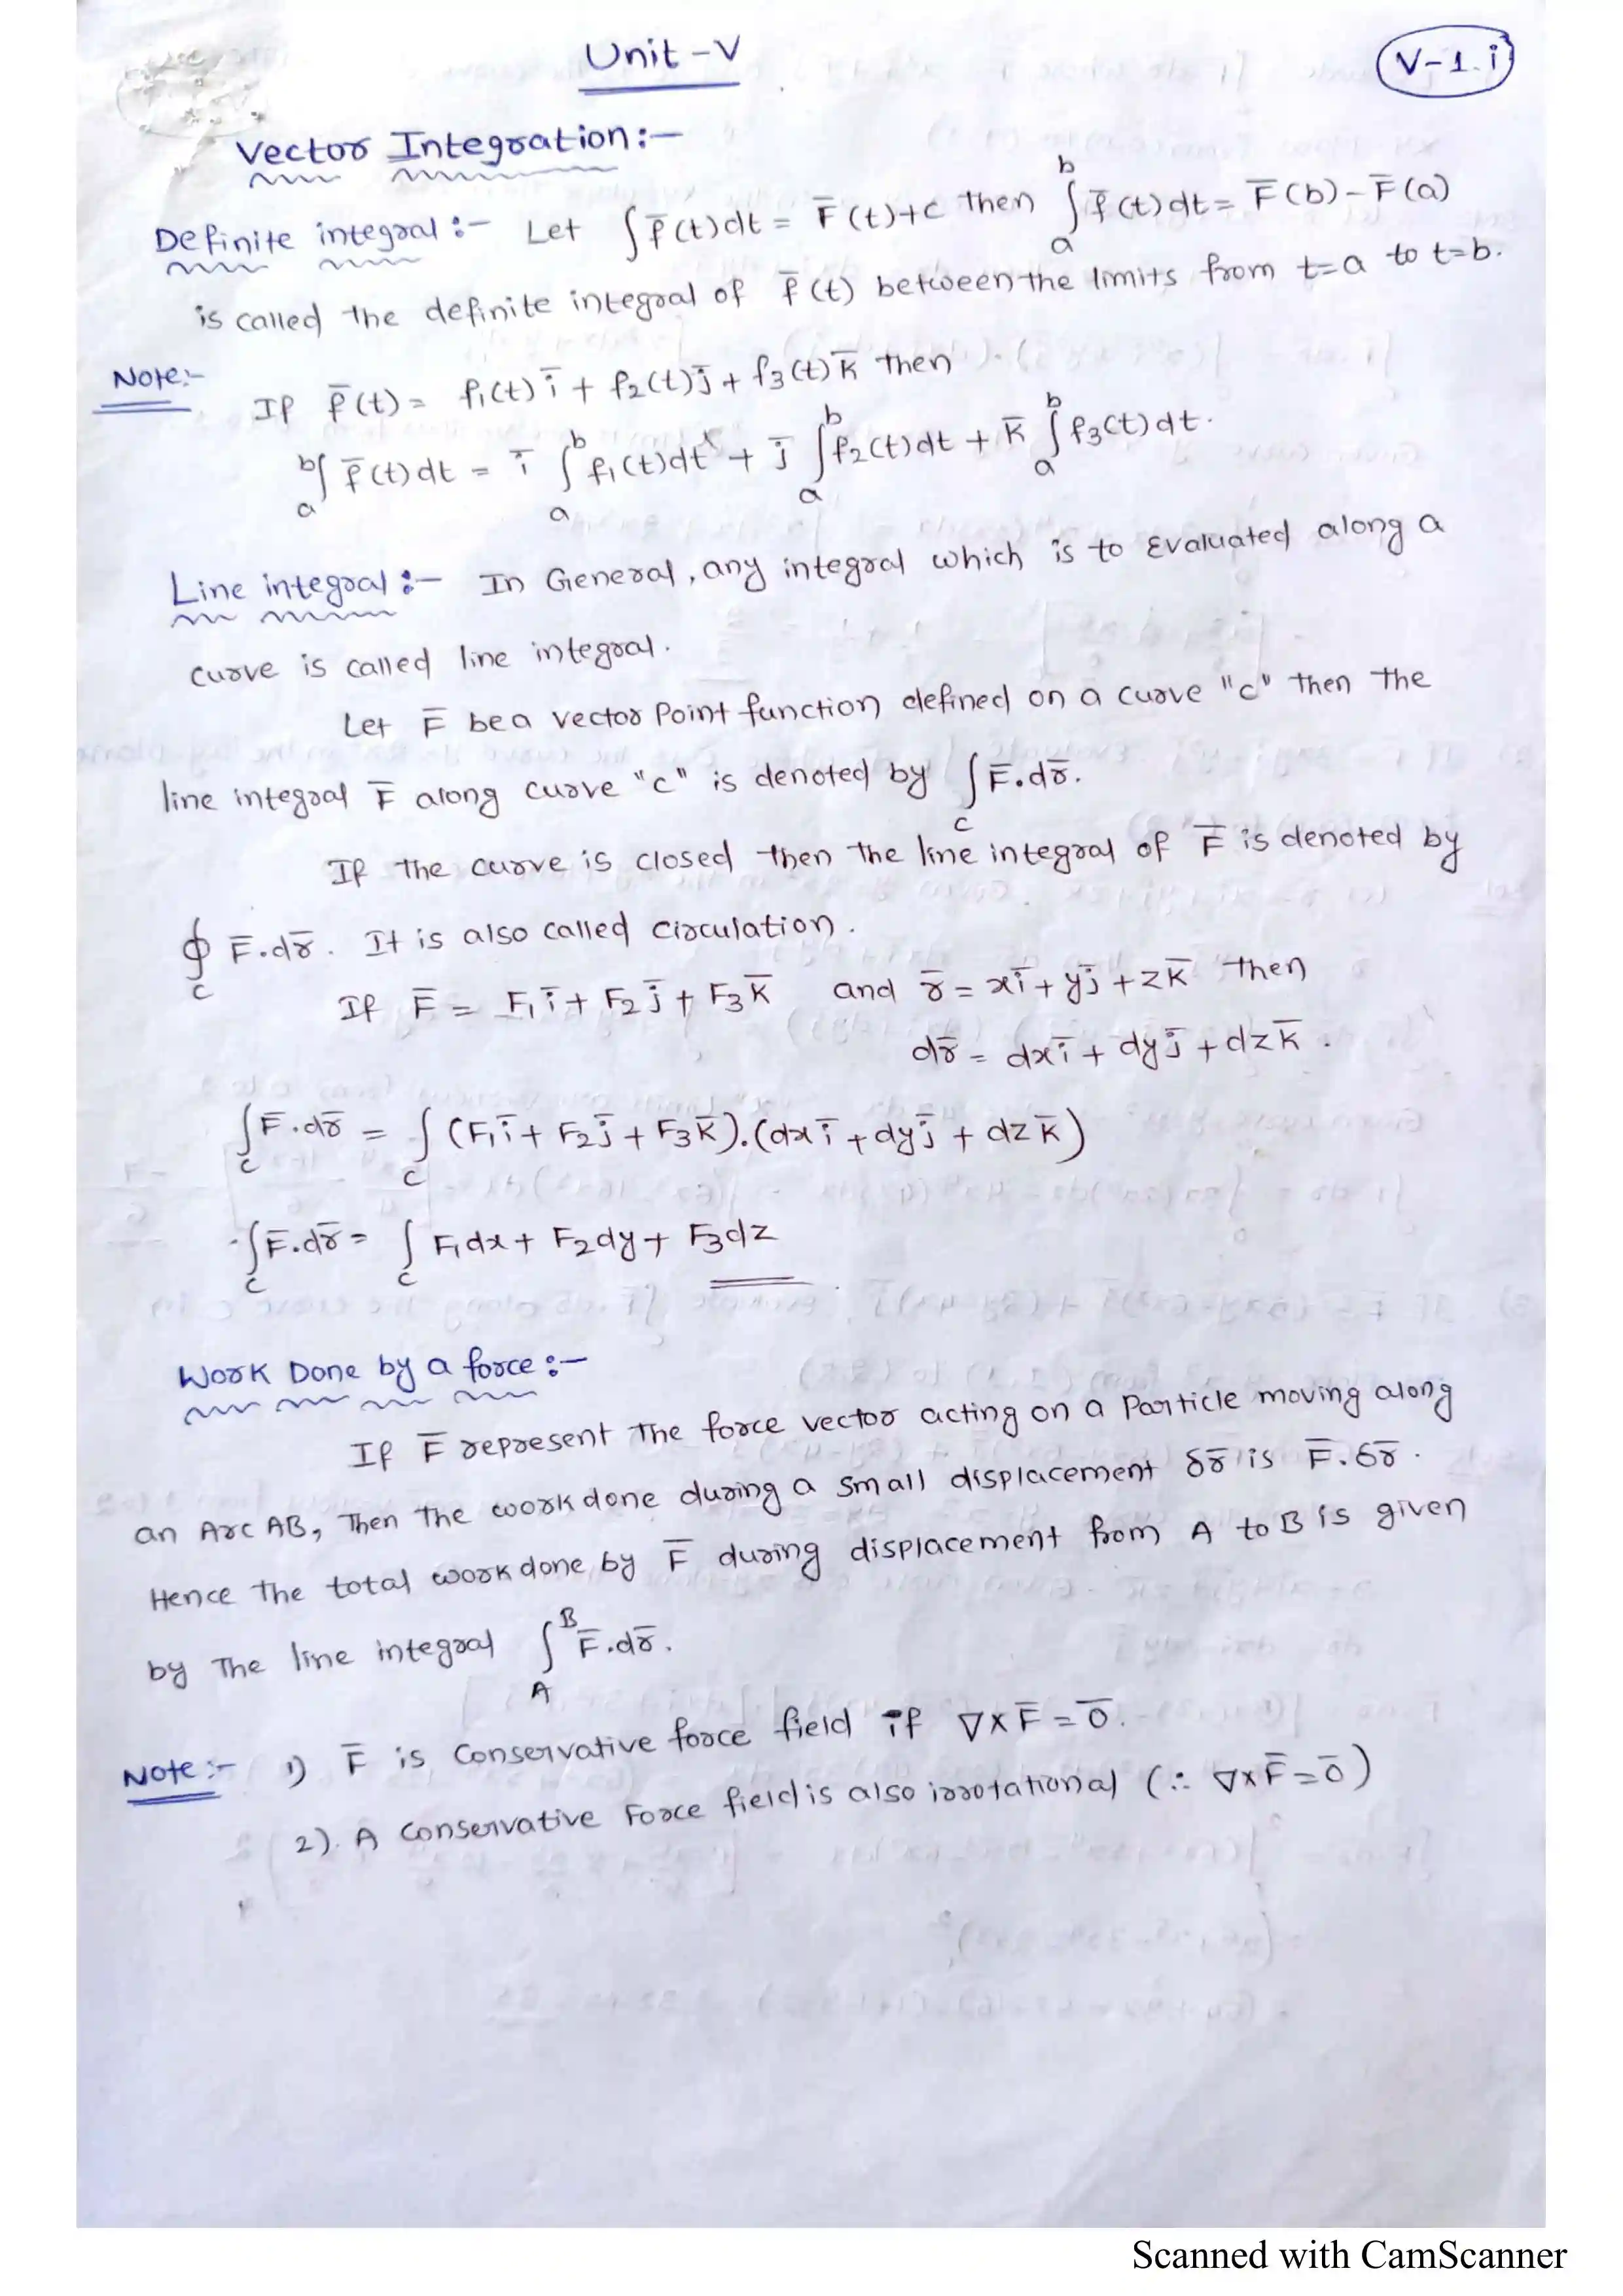 Unit - V
V-1.i
Vector Integration :-
Definite integral :- Let ∫ f̄(t)dt = F̄(t)+c then ∫_a^b f̄(t)dt = F̄(b) - F̄(a)
is called the definite integral of f̄(t) between the limits from t=a to t=b.
Note:-
If f̄(t) = f₁(t) ī + f₂(t) j̄ + f₃(t) k̄ then
∫_a^b f̄(t)dt = ī ∫_a^b f₁(t)dt + j̄ ∫_a^b f₂(t)dt + k̄ ∫_a^b f₃(t)dt.
Line integral :- In General, any integral which is to Evaluated along a
curve is called line integral.
Let F̄ be a vector Point function defined on a curve "c" then the
line integral F̄ along curve "c" is denoted by ∫_c F̄.dr̄.
If the curve is closed then the line integral of F̄ is denoted by
∮_c F̄.dr̄. It is also called circulation.
If F̄ = F₁ ī + F₂ j̄ + F₃ k̄ and r̄ = xī + yj̄ + zk̄ then
dr̄ = dxī + dyj̄ + dzk̄.
∫_c F̄.dr̄ = ∫_c (F₁ī + F₂j̄ + F₃k̄).(dxī + dyj̄ + dzk̄)
∫_c F̄.dr̄ = ∫_c F₁dx + F₂dy + F₃dz
Work Done by a force :-
If F̄ represent The force vector acting on a Particle moving along
an Arc AB, Then The work done during a small displacement δr̄ is F̄.δr̄.
Hence The total work done by F̄ during displacement from A to B is given
by The line integral ∫_A^B F̄.dr̄.
Note :- 1) F̄ is Conservative force field if ∇×F̄ = 0̄.
2). A Conservative Force field is also irrotational (∵ ∇×F̄ = 0̄)
Scanned with CamScanner